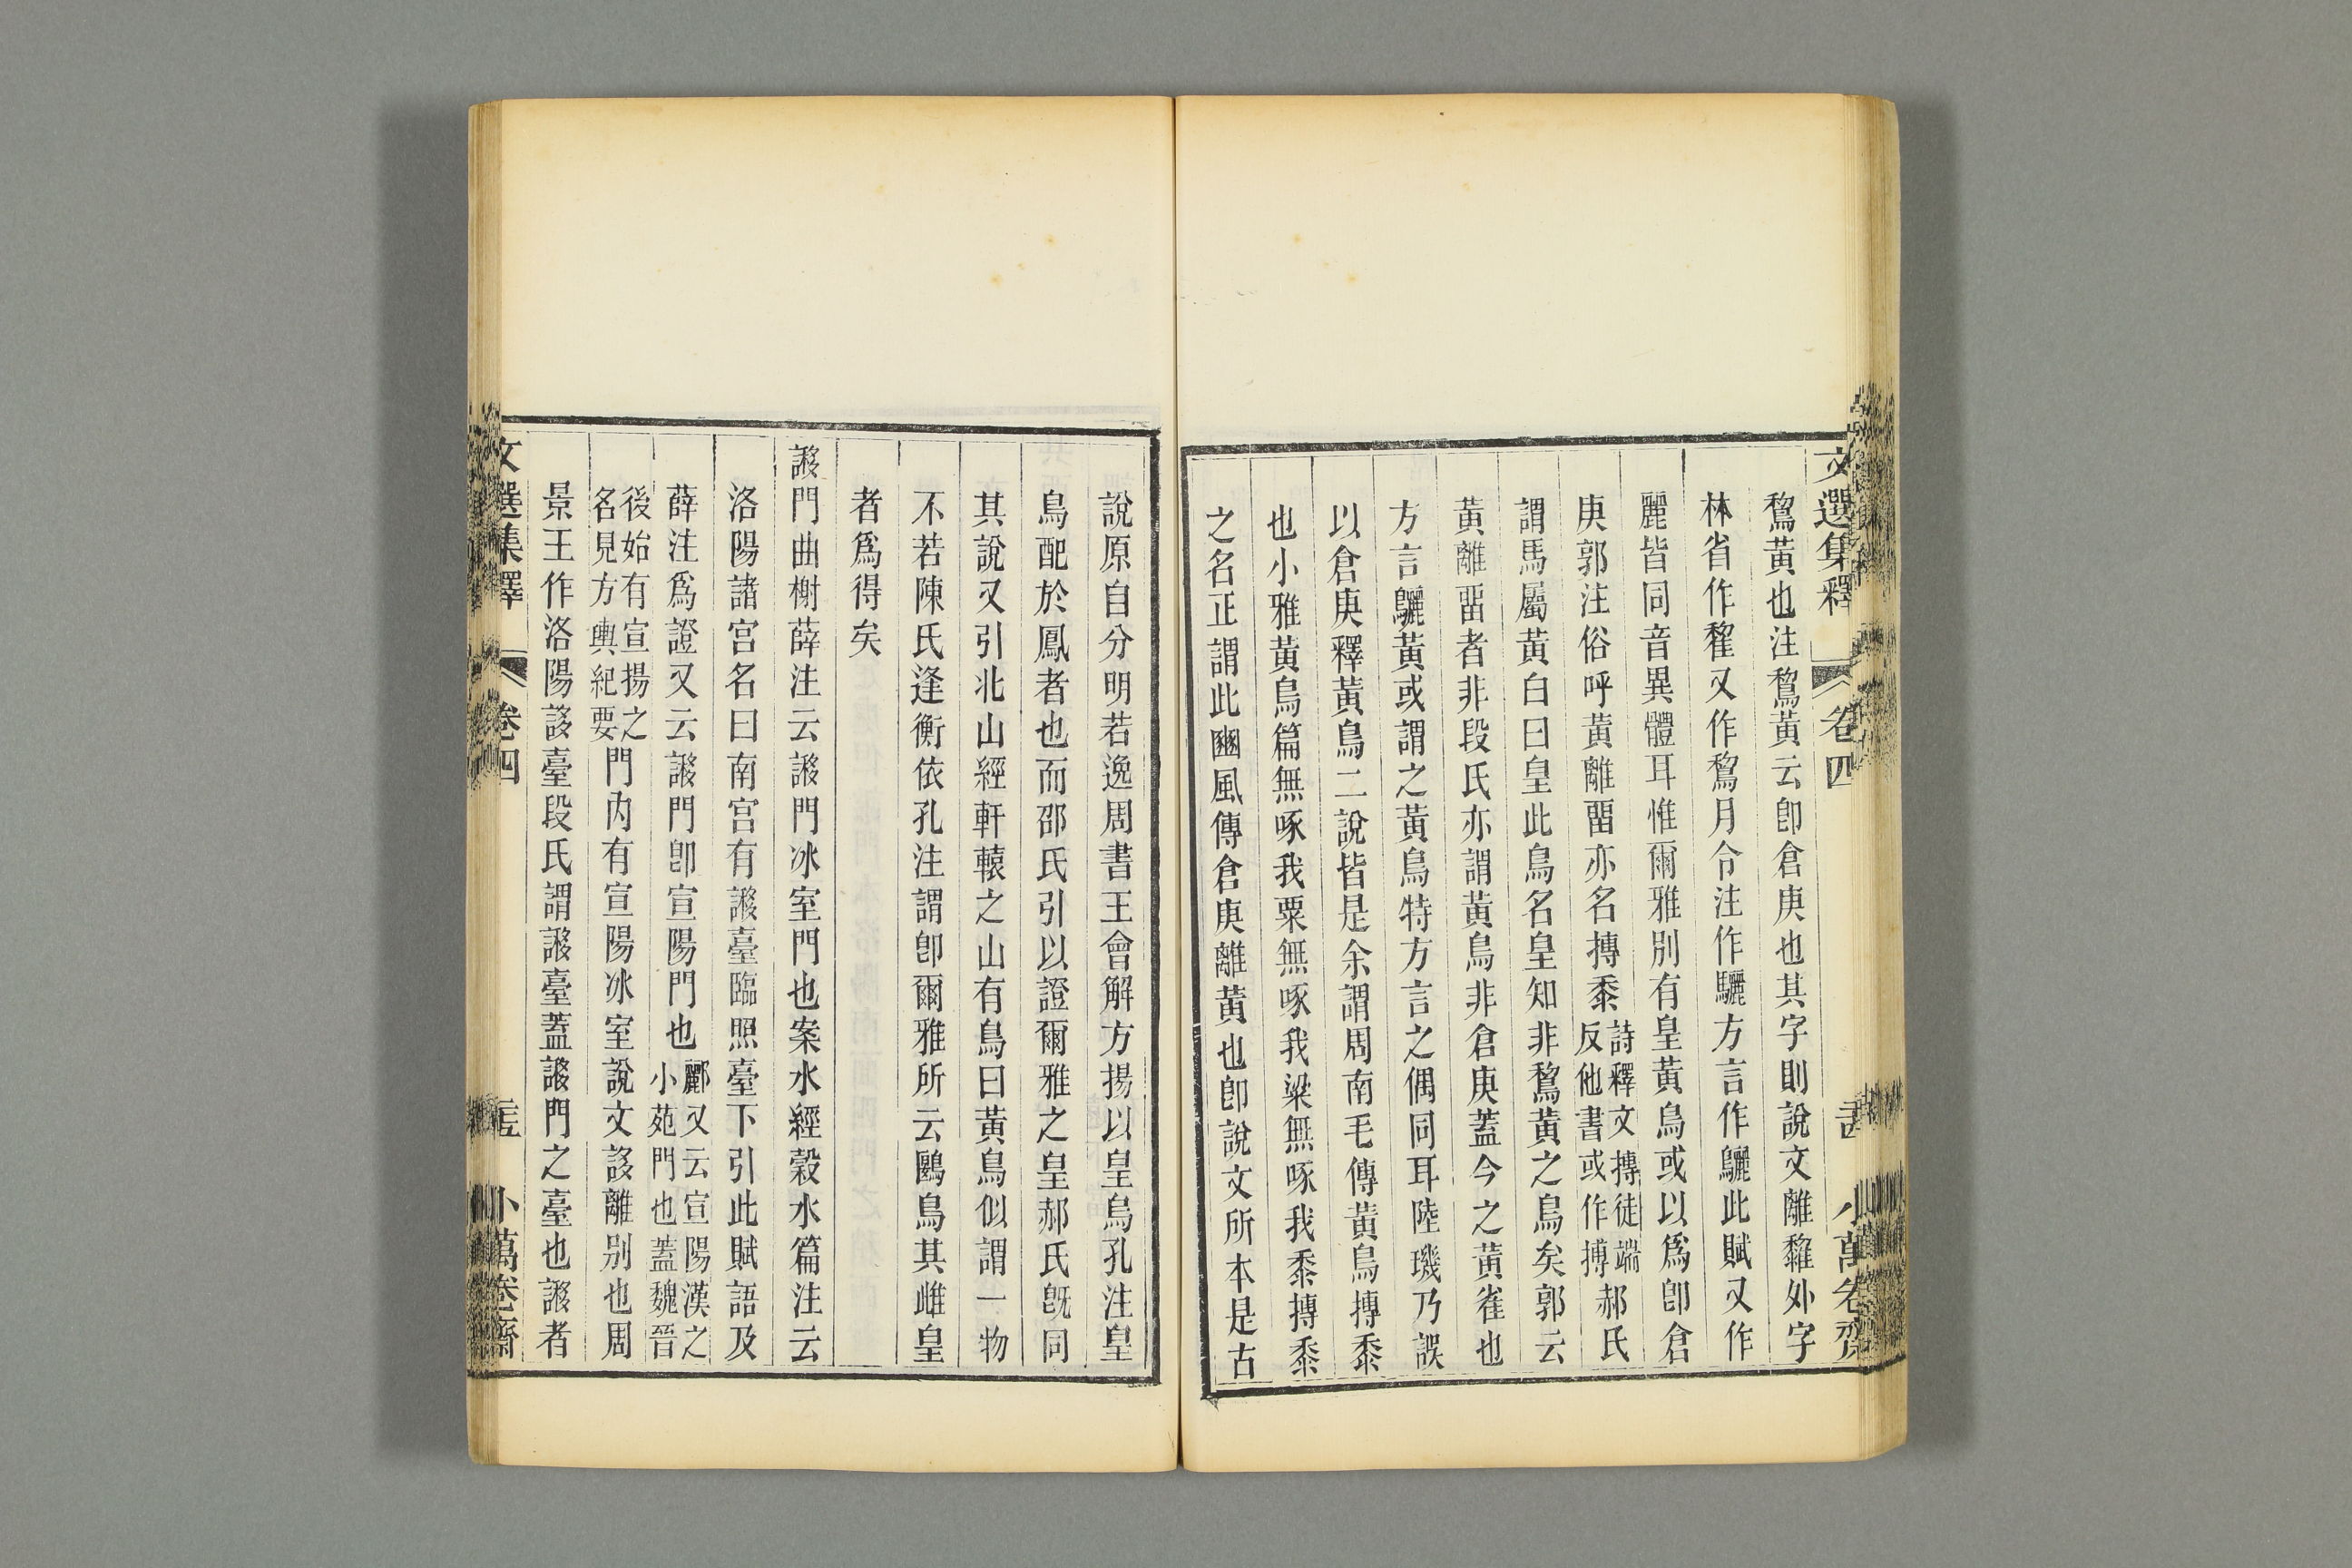 文選集釋 卷四 小萬卷齋
鶩黃也注鶩黃云卽倉庚也其字則說文離雞外字
林省作雞又作鶩月令注作驪方言作鸝此賦又作
麗皆同音異體耳惟爾雅別有皇黃鳥或以爲卽倉
庚郭注俗呼黃離畱亦名搏黍詩釋文搏徒端反他書或作搏郝氏
謂馬屬黃白曰皇此鳥名皇知非鶩黃之鳥矣郭云
黃離畱者非段氏亦謂黃鳥非倉庚蓋今之黃雀也
方言鸝黃或謂之黃鳥特方言之偶同耳陸璣乃誤
以倉庚釋黃鳥二說皆是余謂周南毛傳黃鳥搏黍
也小雅黃鳥篇無啄我粟無啄我粱無啄我黍搏黍
之名正謂此豳風傳倉庚離黃也卽說文所本是古
說原自分明若逸周書王會解方揚以皇鳥孔注皇
鳥配於鳳者也而邵氏引以證爾雅之皇郝氏旣同
其說又引北山經軒轅之山有鳥曰黃鳥似謂一物
不若陳氏逢衡依孔注謂卽爾雅所云鶠鳥其雌皇
者爲得矣
謻門曲榭薛注云謻門冰室門也案水經穀水篇注云
洛陽諸宮名曰南宮有謻臺臨照臺下引此賦語及
薛注爲證又云謻門卽宣陽門也酈又云宣陽漢之小苑門也蓋魏晉
後始有宣揚之名見方輿紀要門內有宣陽冰室說文謻離別也周
景王作洛陽謻臺段氏謂謻臺蓋謻門之臺也謻者
文選集釋 卷四 小萬卷齋